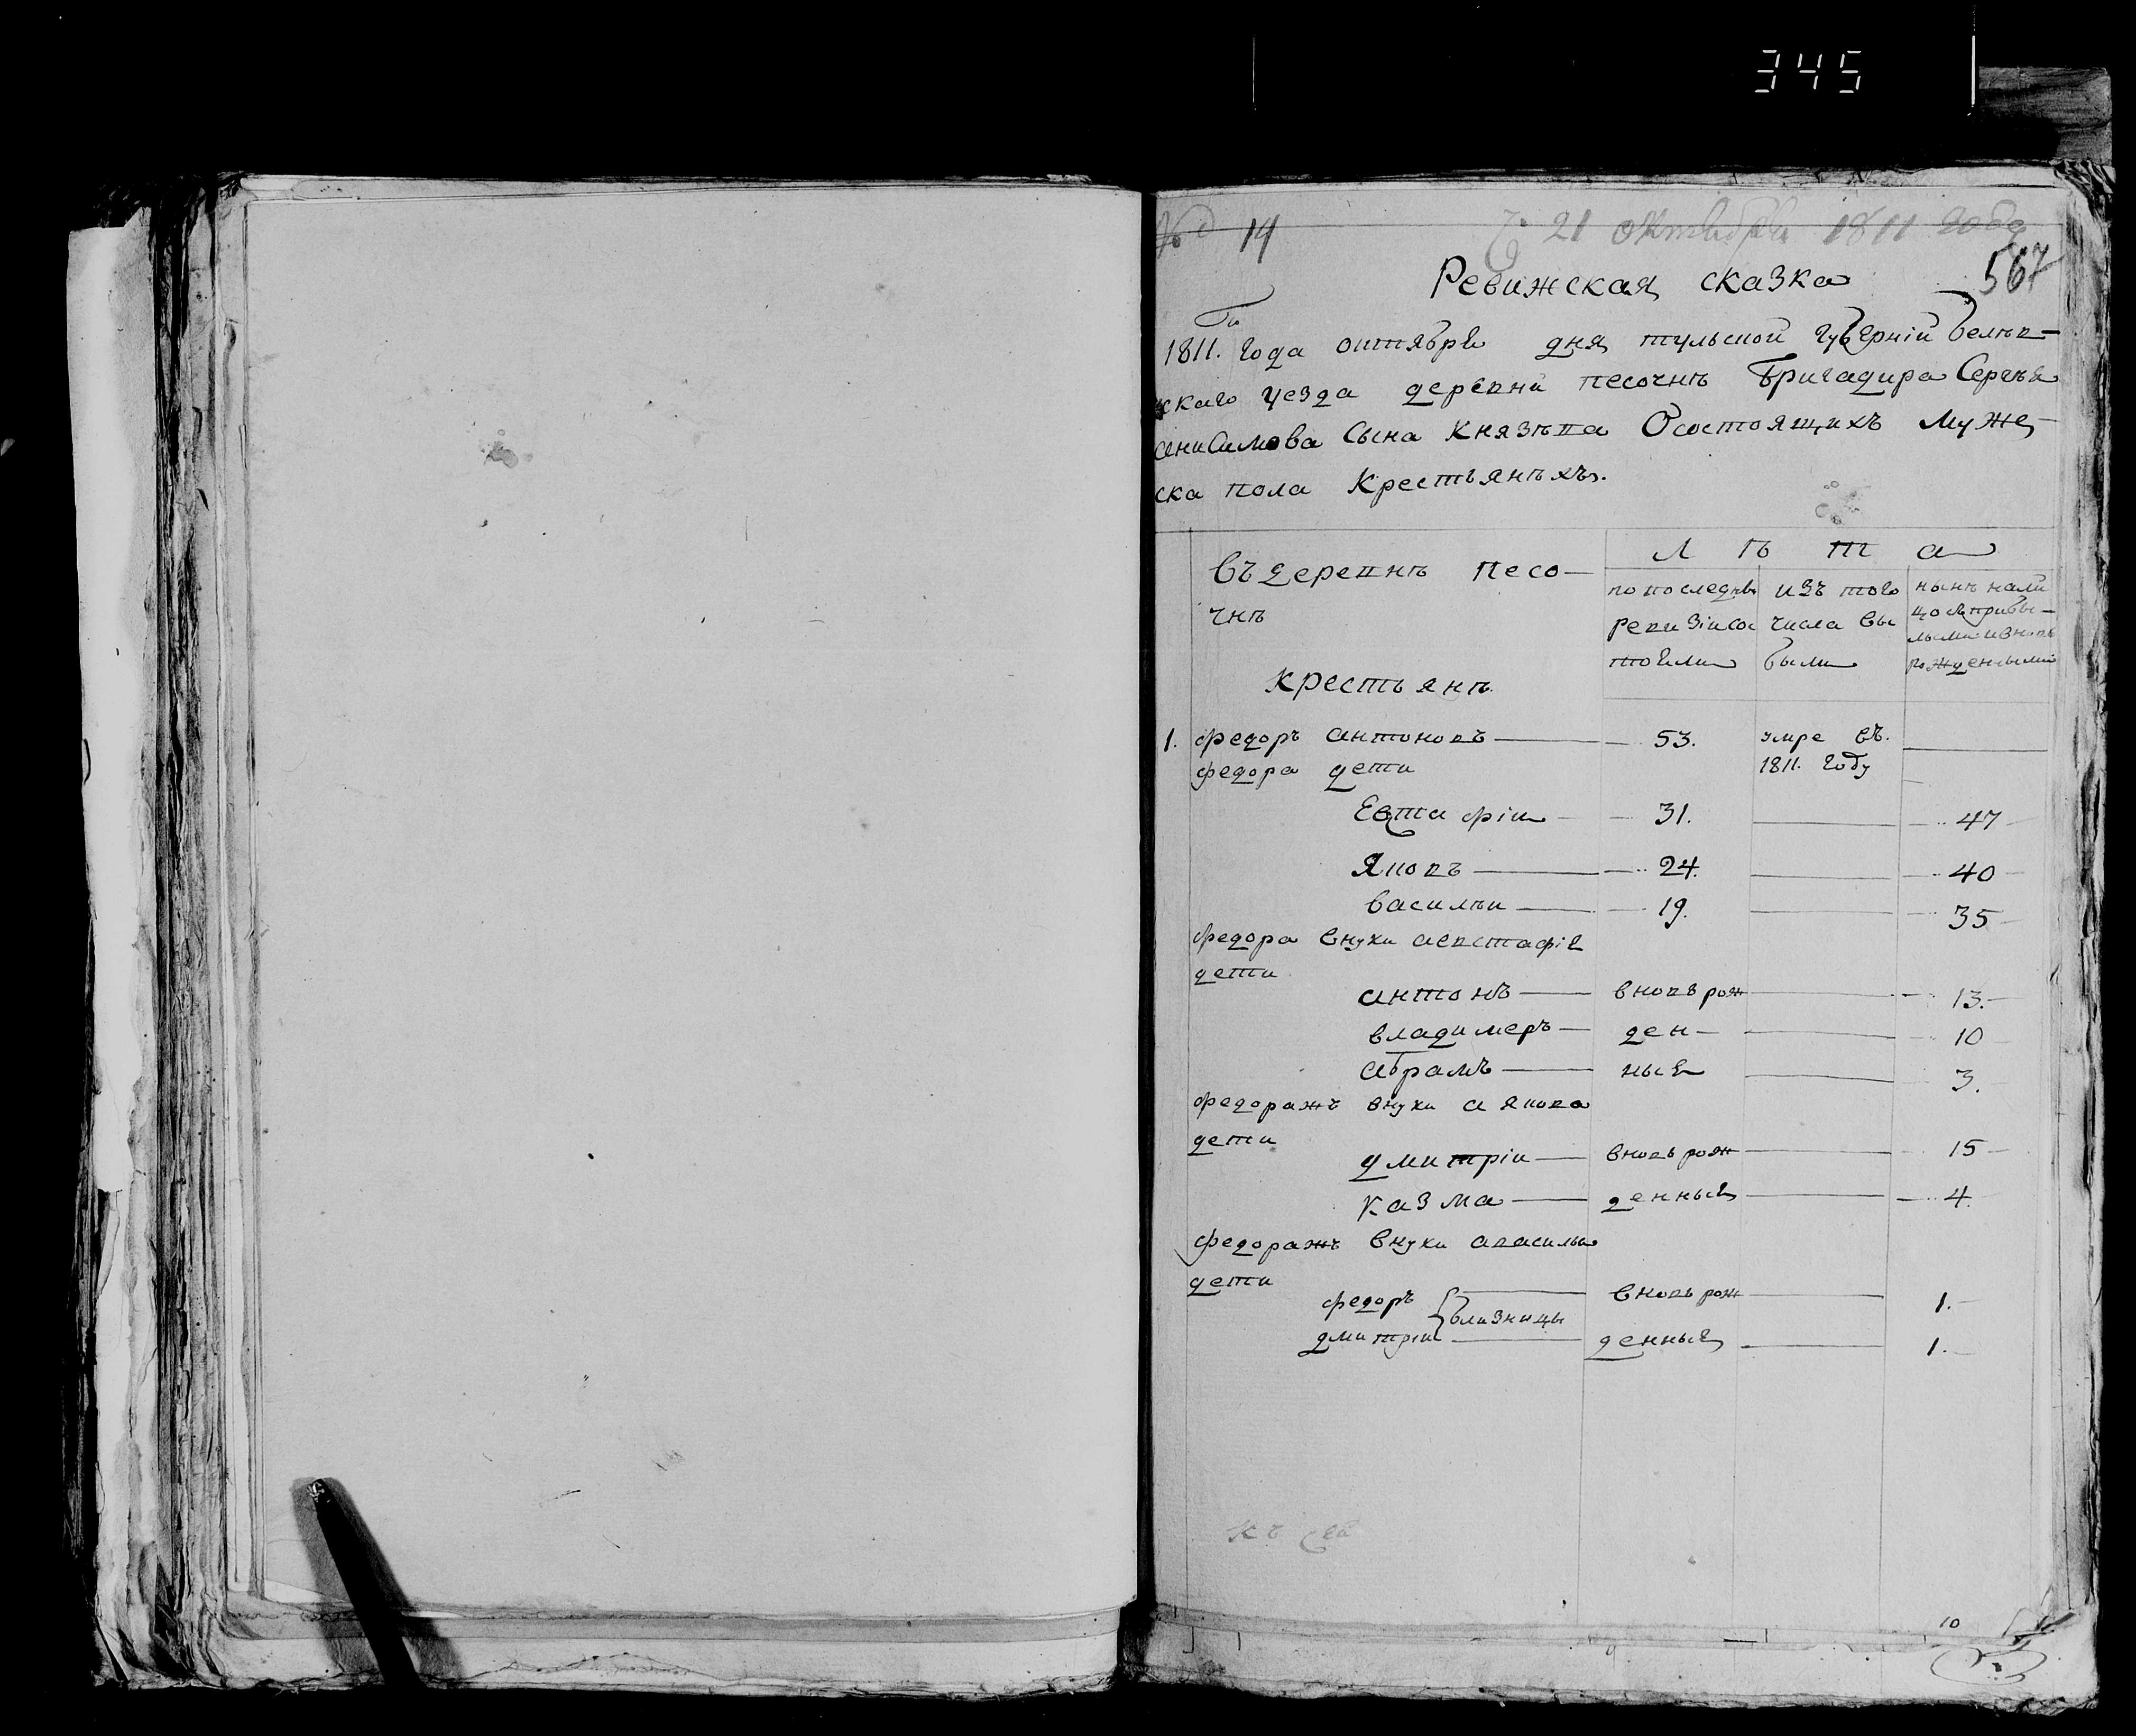 345
№ 14
21 октября 1811 года
567
Ревижская сказка
1811. года октября дня тульской губернiи белев-
скаго уезда деревни песочнѣ Бригадира Сергѣя
анисимова Сына Князѣва Осостоящихъ муже-
ска пола Крестьянѣхъ.
Лѣта
въдеревнѣ песо-
чнѣ
крестьянѣ
попоследнѣ
ревизiисос
тояли
изъ того
числа вы
были
нынѣ нали
цосприбы-
лымиивновь
рожденными
1. федоръ антоновъ — 53. умре въ.
1811. году
федора дети
Евстафiи — 31. — 47
Яковъ — 24. — 40
василѣи — 19. — 35
федора внуки аевстафiя
дети
антонъ — вновърож — 13.
владимеръ — ден — 10
абрамъ — ные — 3.
федоражъ внуки а якова
дети
дмитрiи — вновь рож — 15
казма — денные — 4.
федоражъ внуки авасилья
дети
федоръ } близницы — вновь рож — 1.
дмитрiи — денные — 1.
10